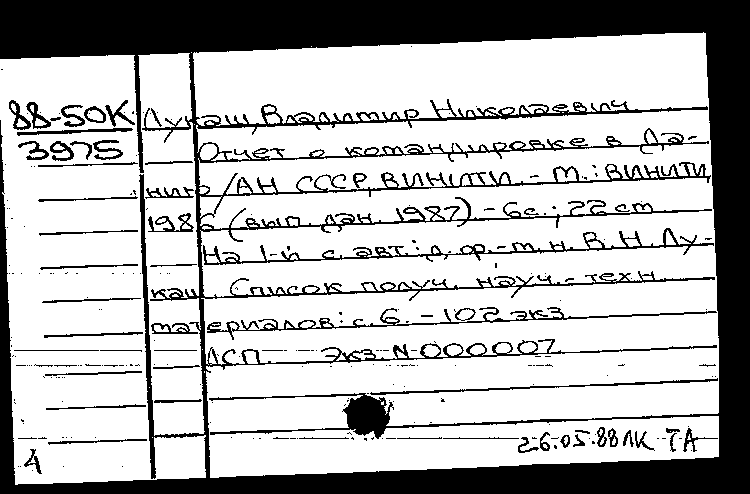 88-50К Лукаш, Владимир Николаевич
3975 Отчет о командировке в Да-
нию / АН СССР, ВИНИТИ. - М.: ВИНИТИ,
1986 (вып. дан. 1987) - 6с.; 22 cm
На 1-й с. авт.: д. ф.-м. н. В. Н. Лу-
каш. Список получ. науч.-техн.
материалов: с. 6. - 102 экз.
ДСП. Экз. N 000007
26.05.88 ЛК ТА
4